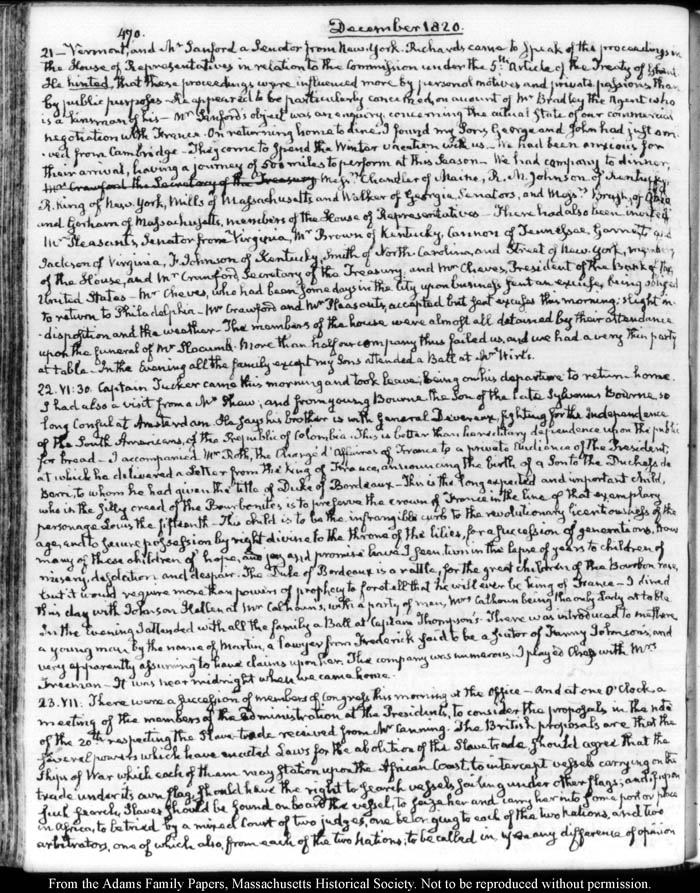 490.
December 1820.
21 – Vermont, and Mr Sanford a Senator from New-York. Richards came to speak of the proceedings in
the House of Representatives in relation to the Commission under the 5th Article of the Treaty of Ghent
He hinted, that these proceedings were influenced more by personal motives and private passions, than
by public purposes – He appeared to be particularly concerned, on account of Mr Bradley the Agent who
is a kinsman of his – Mr Sanford's object was an enquiry concerning the actual State of our commercial
negotiation with France. On returning home to dine, I found my Sons George and John had just arri-
-ved from Cambridge – They come to spend the Winter vacation with us – We had been anxious for
their arrival, having a journey of 500 miles to perform at this Season – We had company to dinner,
Mr Crawford the Secretary of the Treasury Messrs Chandler of Maine, R. M. Johnson of Kentucky
R. King of New-York, Mills of Massachusetts and Walker of Georgia, Senators, and Messrs Brush, of Ohio
and Gorham of Massachusetts, members of the House of Representatives – There had also been invited
Mr Pleasants, Senator from Virginia, Mr Brown of Kentucky, Cannon of Tennessee, Garnett and
Jackson of Virginia, F. Johnson of Kentucky, Smith of North-Carolina, and Street of New-York, members
of the House, and Mr Crawford, Secretary of the Treasury, and Mr Cheves, President of the Bank of the
United States – Mr Cheves, who had been some days in the City upon business sent an excuse, being obliged
to return to Philadelphia – Mr Crawford and Mr Pleasants, accepted but sent excuses this morning; slight in-
-disposition and the weather – The members of the house were almost all detained by their attendance
upon the funeral of Mr Slocumb. More than half our company thus failed us, and we had a very thin party
at table – In the evening all the family except my Sons attended a Ball at Mr Wirt's.
22. VI: 30. Captain Tucker came this morning and took leave; being on his departure to return home.
I had also a visit from a Mr Shaw, and from young Bourne, the Son of the late Sylvanus Bourne, so
long Consul at Amsterdam. He says his brother is with General Devereux, fighting for the Independence
of the South Americans, of the Republic of Colombia. This is better than hereditary dependence upon the public
for bread – I accompanied Mr Roth, the Chargé d'Affaires of France to a private Audience of the President,
at which he delivered a Letter from the King of France, announcing the birth of a Son to the Duchess de
Berri, to whom he had given the title of Duke of Bordeaux – This is the long expected and important child,
who in the silly creed of the Bourbonites is to preserve the crown of France in the line of that exemplary
personage Louis the fifteenth – This child is to be the infrangible curb to the revolutionary licentiousness of the
age, and to secure possession by right divine to the throne of the lilies, for a succession of generations. How
many of these children of hope, and joy, and promise have I seen turn in the lapse of years to children of
misery, desolation, and despair. The Duke of Bordeaux is a rattle, for the great children of the Bourbon race,
but it would require more than powers of prophecy to foretell that he will ever be king of France – I dined
this day with Johnson Hellen at Mr Calhoun's, with a party of men, Mrs Calhoun being the only Lady at table
In the evening I attended with all the family a Ball at Captain Thompson's. There was introduced to me there
a young man by the name of Martin, a lawyer from Frederick said to be a suitor of Fanny Johnson's, and
very apparently assuming to have claims upon her. The company was numerous. I played Chess with Mrs
Freeman – It was near midnight when we came home.
23. VII: There were a succession of members of Congress this morning at the Office – And at one O'Clock a
meeting of the members of the administration at the Presidents, to consider the proposals in the note
of the 20th respecting the Slave trade received from Mr Canning. The British proposals are that the
several powers which have enacted Laws for the abolition of the Slave trade, should agree that the
Ships of War which each of them may station upon the African Coast, to intercept vessels carrying on the
trade under its own flag, should have the right to search vessels sailing under other flags; and if upon
such search, Slaves should be found on board the vessel, to seize her and carry her into some port or place
in Africa, to be tried by a mixed Court of two judges, one belonging to each of the two Nations, and two
arbitrators, one of which also, from each of the two Nations, to be called in, upon any difference of opinion
From the Adams Family Papers, Massachusetts Historical Society. Not to be reproduced without permission.